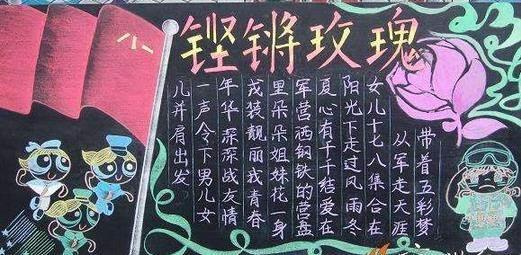 八一
铿锵玫瑰
带着五彩梦
从军走天涯
女儿十七八集合在
阳光下走过风雨冬
夏心有千千结爱在
军营洒钢铁的营盘
里朵朵姐妹花一身
戎装靓丽我青春
年华深深战友情
一声令下男儿女
儿并肩出发